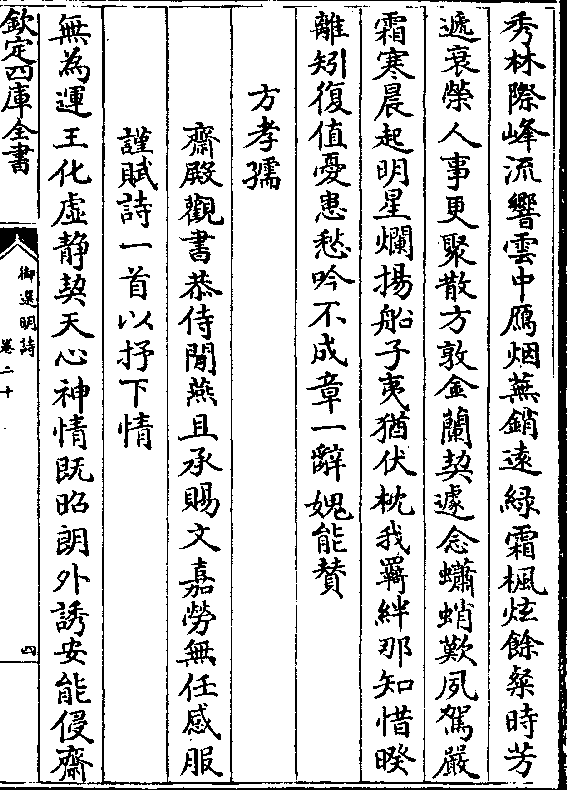 秀林際峰流響雲中鴈烟蕪銷遠綠霜楓炫餘粲時芳
遞衰榮人事更聚散方敦金蘭契遽念蠨蛸歎夙駕嚴
霜寒晨起明星爛揚船子夷猶伏枕我羈絆那知惜暌
離矧復值憂患愁吟不成章一辭媿能賛
方孝孺
齋殿觀書恭侍閒燕且承賜文嘉勞無任感服
謹賦詩一首以抒下情
無為運王化虛靜契天心神情既昭朗外誘安能侵齋
欽定四庫全書
御選明詩
卷二十
四